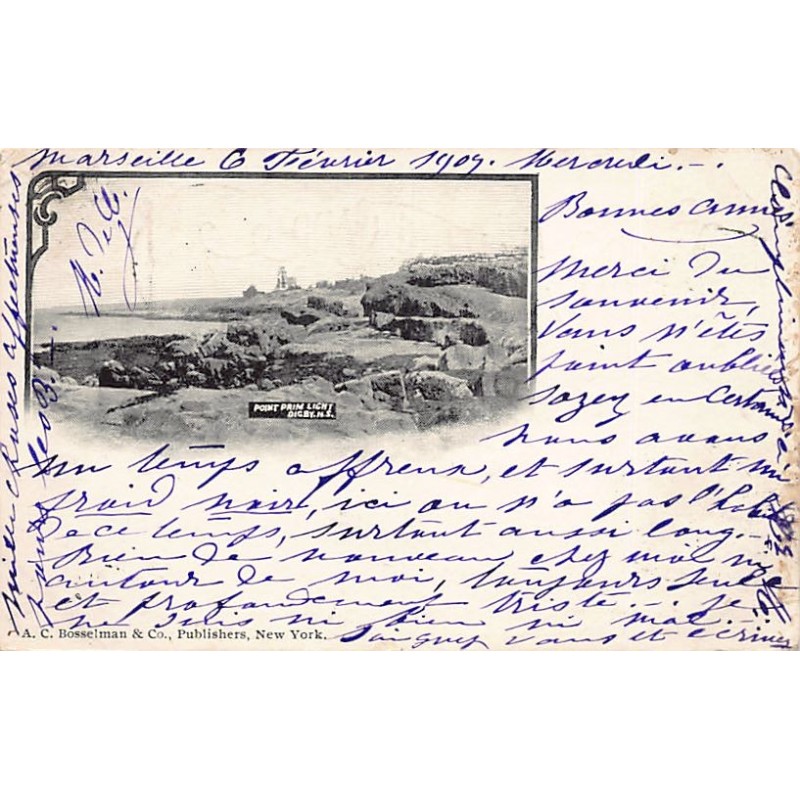 Marseille 6 Février 1907. Mercredi. -.
Bonnes année
Merci du
souvenir,
Vous n'êtes
point oubliée
soyez en certaine
nous avons
un temps affreux, et surtout un
froid noir, ici on n'a pas l'habit
de ce temps, surtout aussi long. -
Bien de nouveau chez moi ni
autour de moi, toujours seule
et profondément triste. -. je
ne suis ni bien ni mal.
Soignez vous et écrivez
mille choses affectueuses
à vous
M. Dell.
POINT PRIM LIGHT
DIGBY. N.S.
A. C. Bosselman & Co., Publishers, New York.